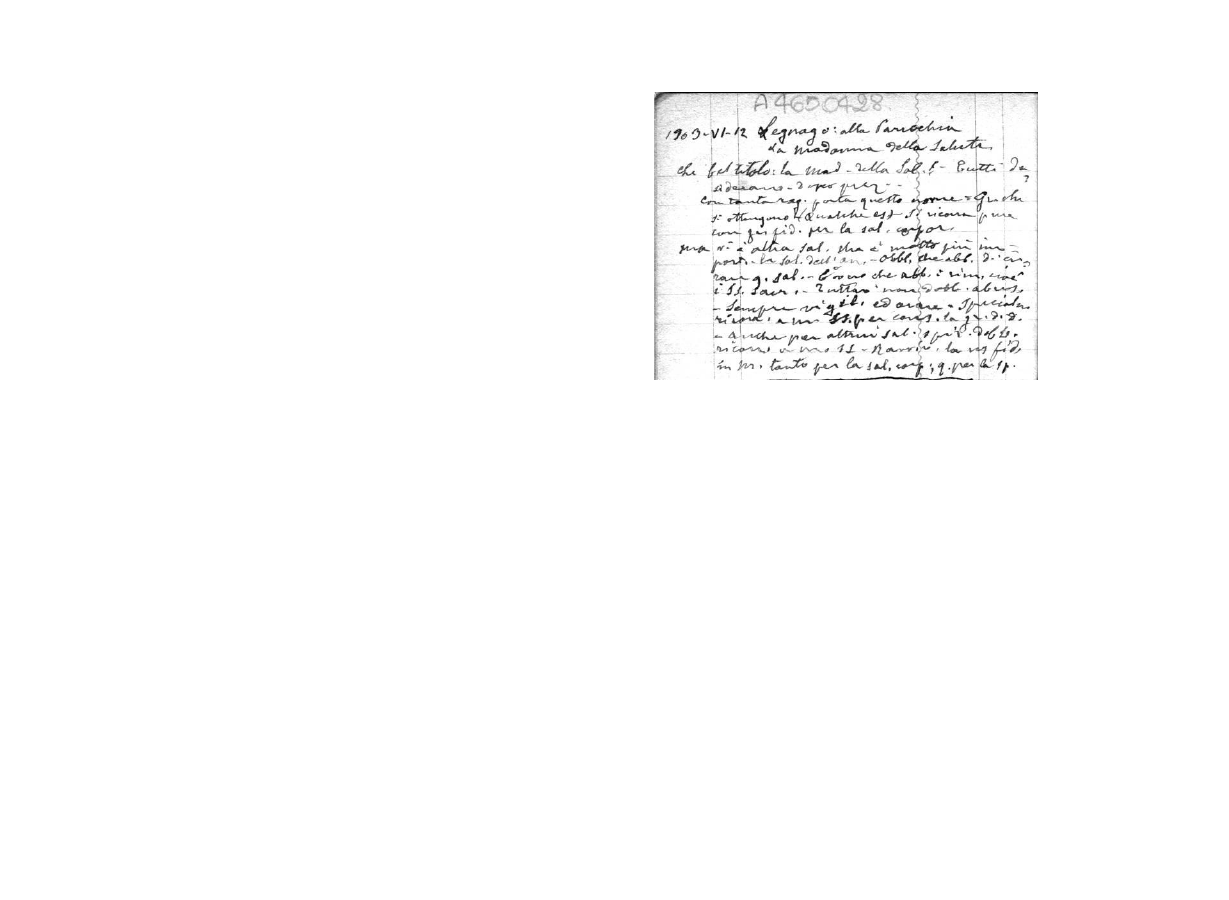 A4650428
1909-VI-12 Legnago: alla Parrochia
La Madonna della Salute.
che bel titolo: la Mad. della Sal.! - Tutti de
siderano - dopo
con tanta rag. porta questo nome - Grechi
si ottengono Qualche est. Si ricorra pure
con fid. per la sal. corpor.
ma vi è altra sal. che è molto più im-
port. - la sal. dell'an. - Obbl. che abb. di cu-
rare q. sal. - che abb. i rim. cioè
i SS. Sacr. - non dobb. abus.
- Sempre vigil. ed orare -
ricorr. a M SS. per cons. la gr. d. d.
- Anche per altrui sal. spir. dobb.
ricorr. a M SS - Ravviv. la ns fid.
in M. tanto per la sal. corp; q. per la sp.